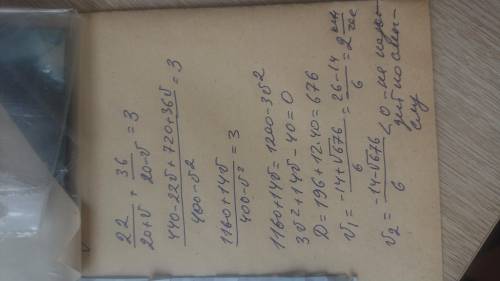 22/(20+v) + 36/(20-v) = 3
(440-22v+720+36v)/(400-v²) = 3
(1160+14v)/(400-v²) = 3
1160+14v = 1200-3v²
3v²+14v-40=0
D=196+12·40=676
v₁ = (-14+√676)/6 = (26-14)/6 = 2 км/час
v₂ = (-14-√676)/6 < 0 - не
по